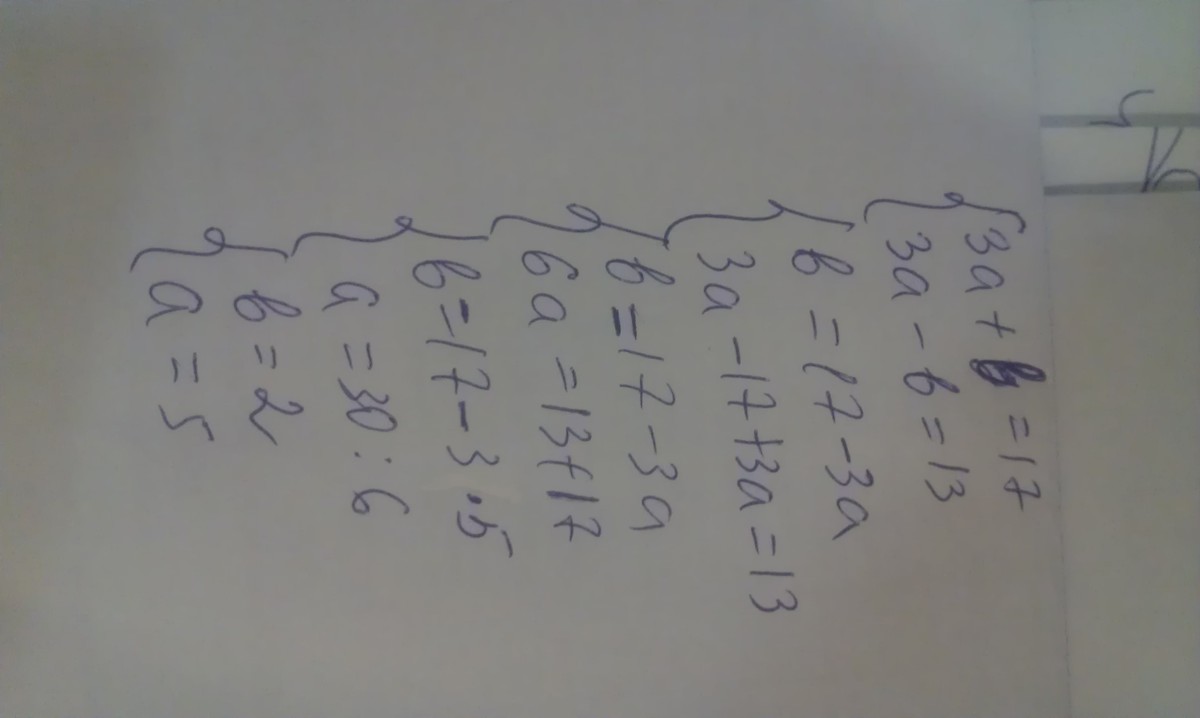 3a + b = 17
3a - b = 13
b = 17 - 3a
3a - 17 + 3a = 13
b = 17 - 3a
6a = 13 + 17
b = 17 - 3 · 5
a = 30 : 6
b = 2
a = 5